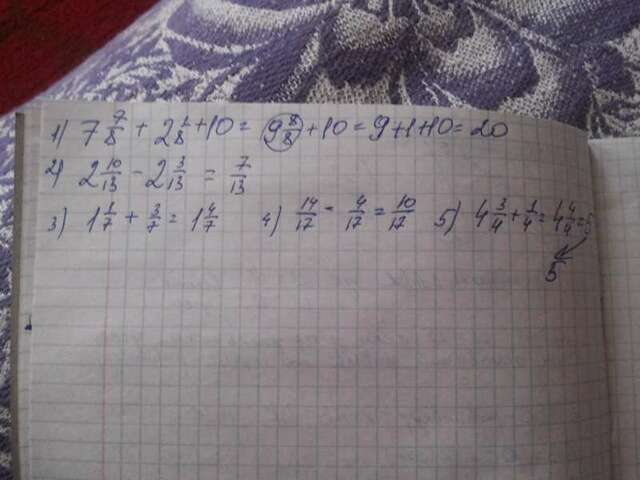 1) 7 7/8 + 2 1/8 + 10 = 9 8/8 + 10 = 9 + 1 + 10 = 20
2) 2 10/13 - 2 3/13 = 7/13
3) 1 1/7 + 3/7 = 1 4/7 4) 14/17 - 4/17 = 10/17 5) 4 3/4 + 1/4 = 4 4/4 = 5
5